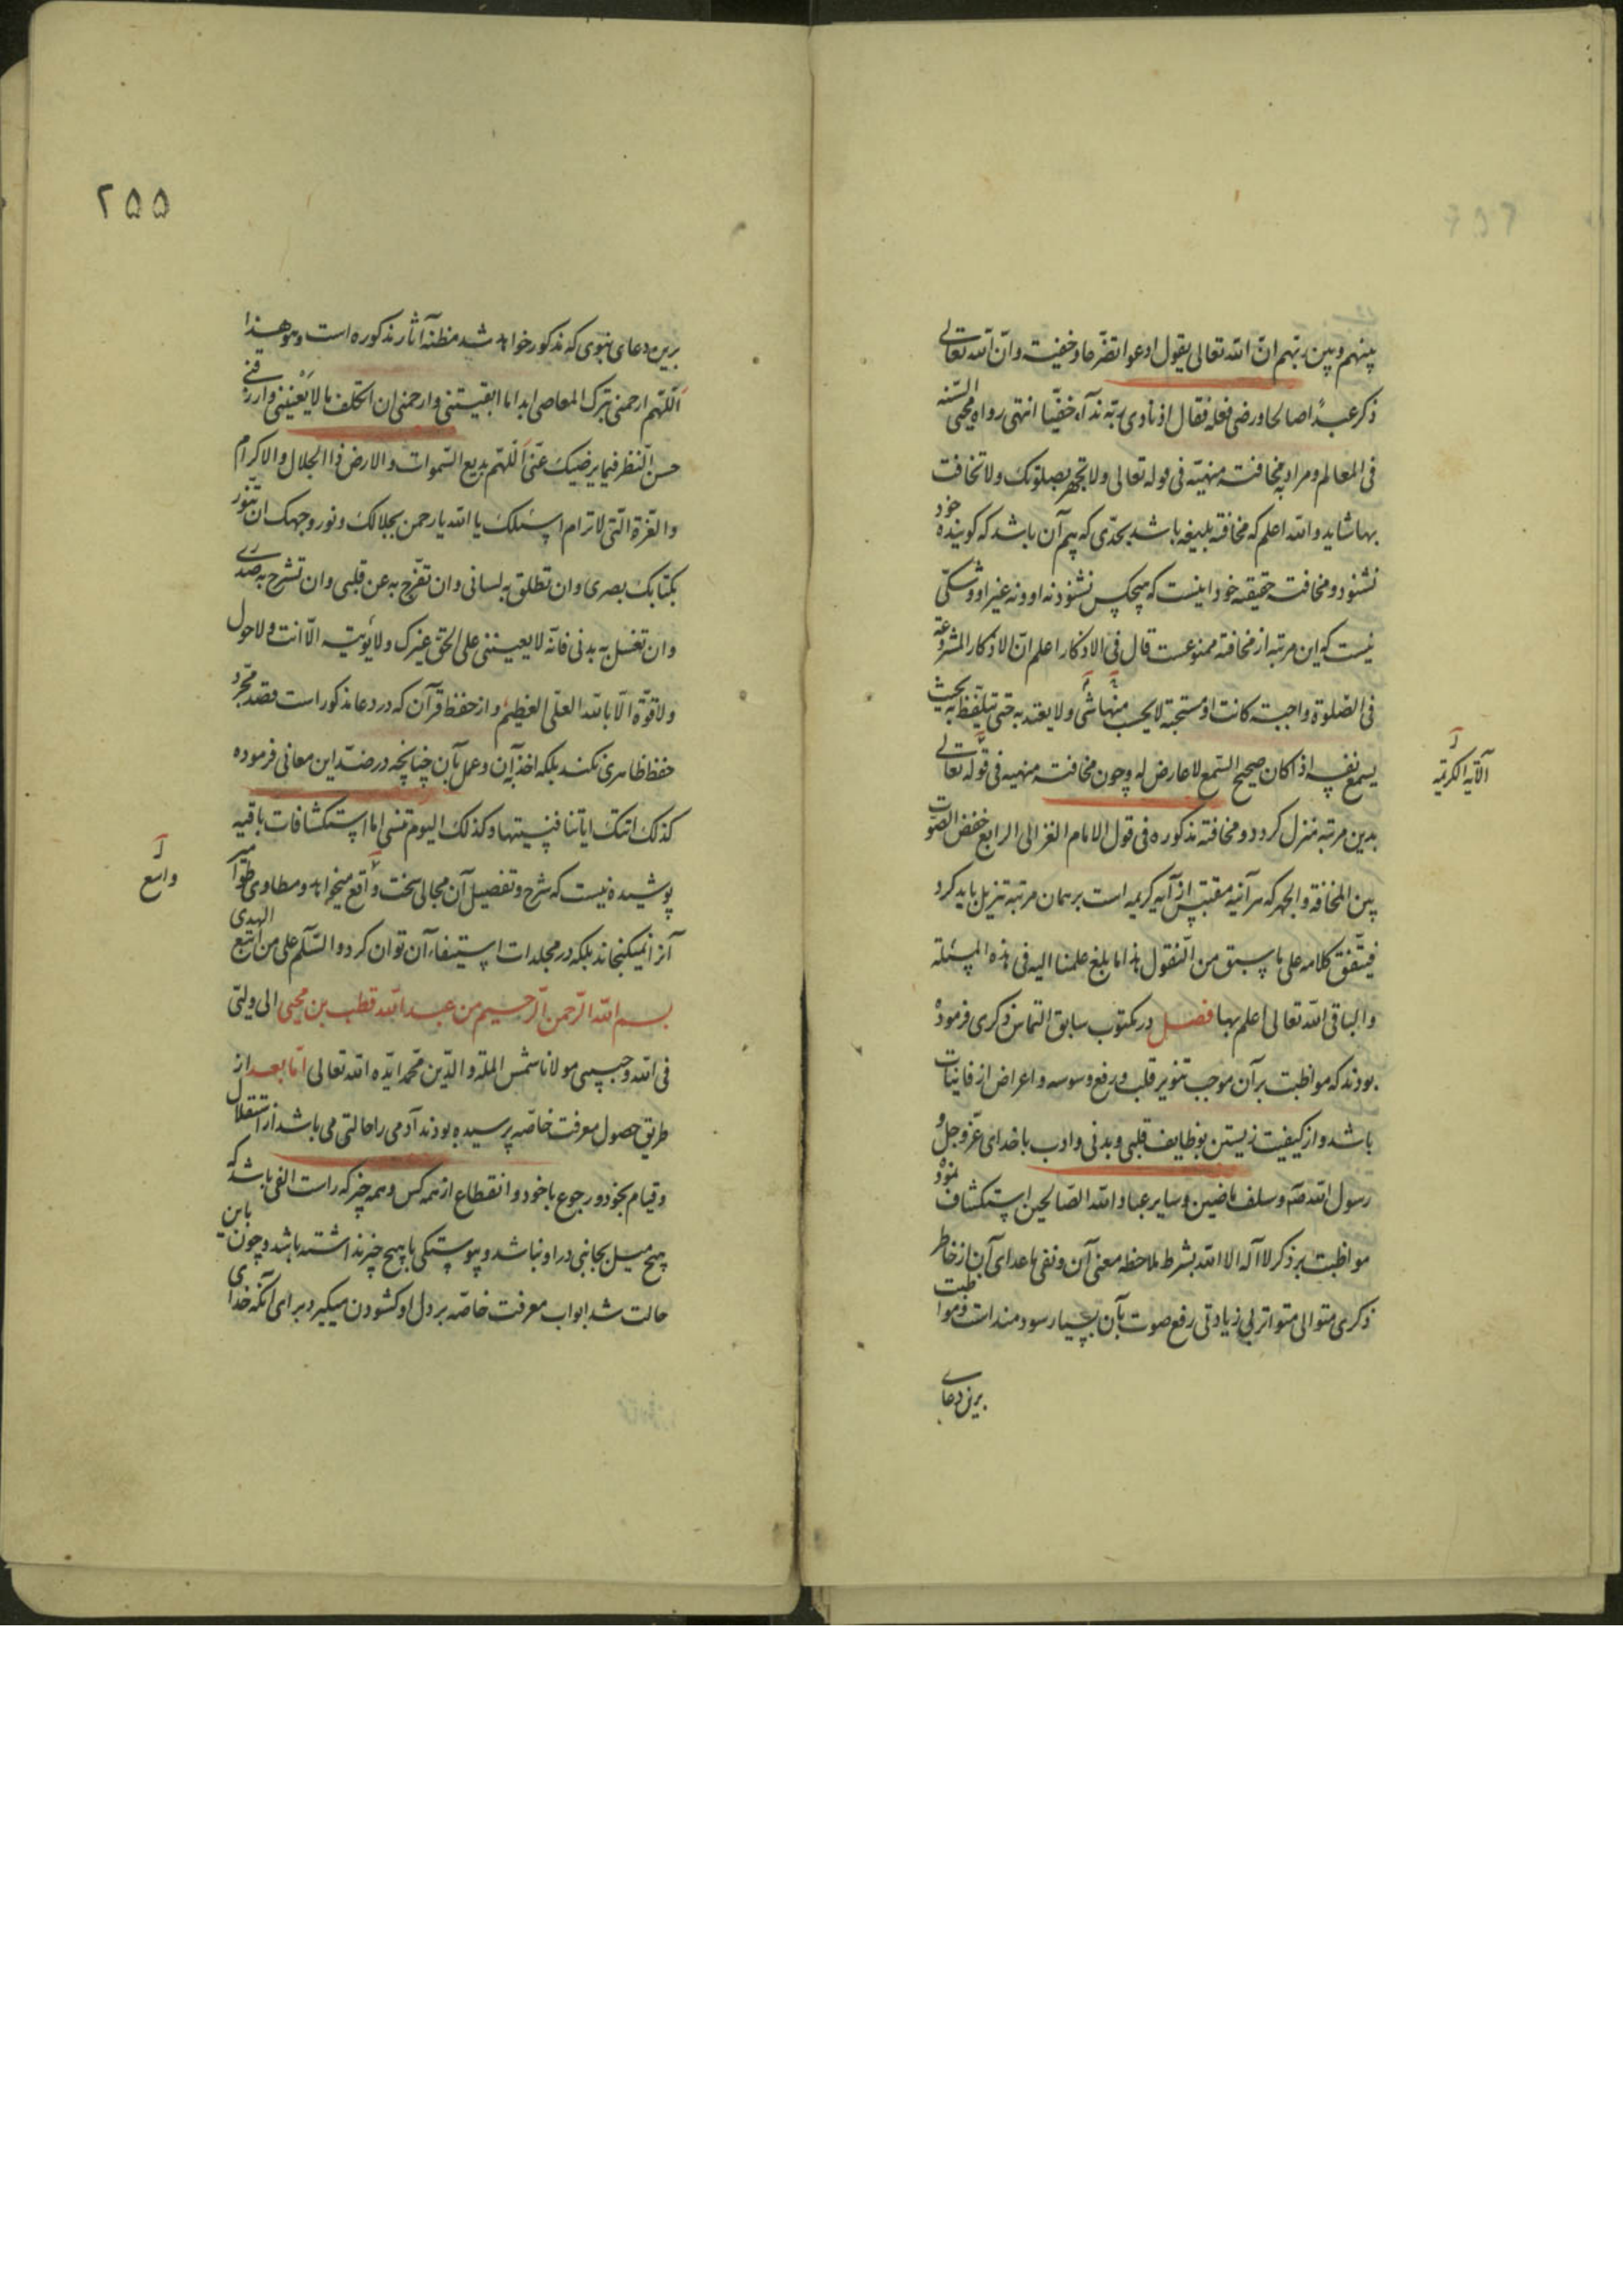 بینهم وبین ربهم انّ الله تعالی یقول ادعوا تضرّعا وخفیة وانّ الله تعالی
ذکر عبدًا صالحا ورضی فعله فقال اذ نادی ربّه ندآء خفیّا انتهی رواه محیی السّنه
فی المعالم ومراد به مخافتة منهیّه فی قوله تعالی ولا تجهر بصلوتک ولا تخافت
بها شاید والله اعلم که مخافته بلیغه باشد بحدّی که بیم آن باشد که کوینده خود
نشنود ومخافت حقیقه خود اینست که هیچکس نشنود نه او ونه غیر او وشکّی
نیست که این مرتبه از مخافته ممنوعست قال فی الاذکار اعلم انّ الاذکار المشروعة
فی الصّلوة واجبة کانت او مستحبّة لا یحسب منها شئ ولا یعتد به حتی یتلفّظ به بحیث
یسمع نفسه اذا کان صحیح السّمع لا عارض له وچون مخافت منهیه فی قوله تعالی
الآیه الکریمه
بدین مرتبه منزل کردد ومخافته مذکوره فی قول الامام الغزالی الرابع خفض الصّوت
بین المخافة والجهر که هر آئنه مقتبس از آیه کریمه است بر همان مرتبه تنزیل باید کرد
فیتّفق کلامه علی ما سبق من النّقول هذا ما بلغ علمنا الیه فی هذه المسئلة
والباقی الله تعالی اعلم بها فصل در مکتوب سابق التماس ذکری فرموده
بودند که مواظبت بر آن موجب تنویر قلب ورفع وسوسه واعراض از فانیات
باشد واز کیفیت زیستن بوظایف قلبی وبدنی وادب با خدای عزّ وجل و
رسول الله صلّم وسلف ماضین وسایر عباد الله الصّالحین استکشاف نموده
مواظبت بر ذکر لا اله الا الله بشرط ملاحظه معنی آن ونفی ماعدای آن از خاطر
ذکری متوالی متواتر بی زیادتی رفع صوت بآن بسیار سودمند است ومواظبت
برین دعای
۲۵۵
برین دعای نبوی که مذکور خواهد شد مظنّه آثار مذکوره است وهو هذا
اللّهم ارحمنی بترک المعاصی ابدا ما ابقیتنی وارحمنی ان اتکلف ما لا یعنینی وارزقنی
حسن النّظر فیما یرضیک عنّی اللّهم بدیع السّموات والارض ذا الجلال والاکرام
والعّزة الّتی لا ترام اسئلک یا الله یا رحمن بجلالک ونور وجهک ان تنّور
بکتابک بصری وان تطلق به لسانی وان تفّرج به عن قلبی وان تشرح به صدری
وان تغسل به بدنی فانّه لا یعیننی علی الحقّ غیرک ولا یؤتیه الّا انت ولا حول
ولا قوّة الّا بالله العلّی العظیم واز حفظ قرآن که در دعا مذکور است قصد مجرّد
حفظ ظاهری نکند بلکه اخذ بآن وعمل بآن چنانچه در ضدّ این معانی فرموده
کذلک اتتک ایاتنا فنسیتها وکذلک الیوم تنسی اما استکشافات باقیه
پوشیده نیست که شرح وتفصیل آن مجالی سخت واقع میخواهد ومطاوی طوامیر
واسع
آنرا نمیکنجاند بلکه در مجلدات استیفاء آن توان کرد والسّلم علی من اتّبع الهدی
بسم الله الرّحمن الرّحیم من عبد الله قطب بن محیی الی ولیّی
فی الله وحبیبی مولانا شمس الملة والدّین محّمد ایّده الله تعالی امّا بعد از
طریق حصول معرفت خاصّه پرسیده بودند آدمی را حالتی می باشد از استقلال
وقیام بخود ورجوع با خود وانقطاع از همه کس وهمه چیز که راست الفی باشد که
هیچ میل بجانبی در او نباشد وپیوستکی با هیچ چیز نداشته باشد وچون باین
حالت شد ابواب معرفت خاصّه بر دل او کشودن میکیرد برای آنکه خدای